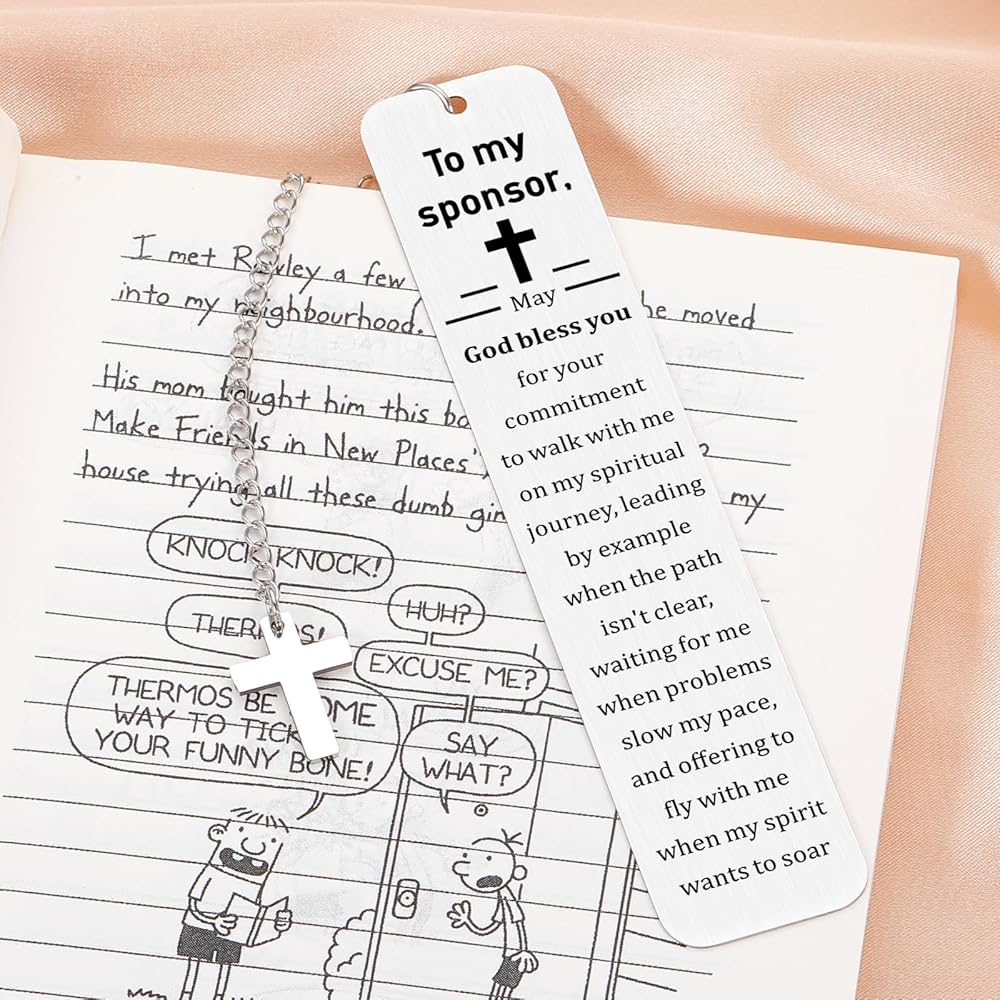 To my
sponsor,
May
God bless you
for your
commitment
to walk with me
on my spiritual
journey, leading
by example
when the path
isn't clear,
waiting for me
when problems
slow my pace,
and offering to
fly with me
when my spirit
wants to soar
I met Rowley a few
into my neighbourhood. he moved
His mom bought him this
Make Friends in New Places',
house trying all these dumb my
KNOCK KNOCK!
THERMOS!
HUH?
EXCUSE ME?
THERMOS BE SOME
WAY TO TICKLE
YOUR FUNNY BONE!
SAY
WHAT?